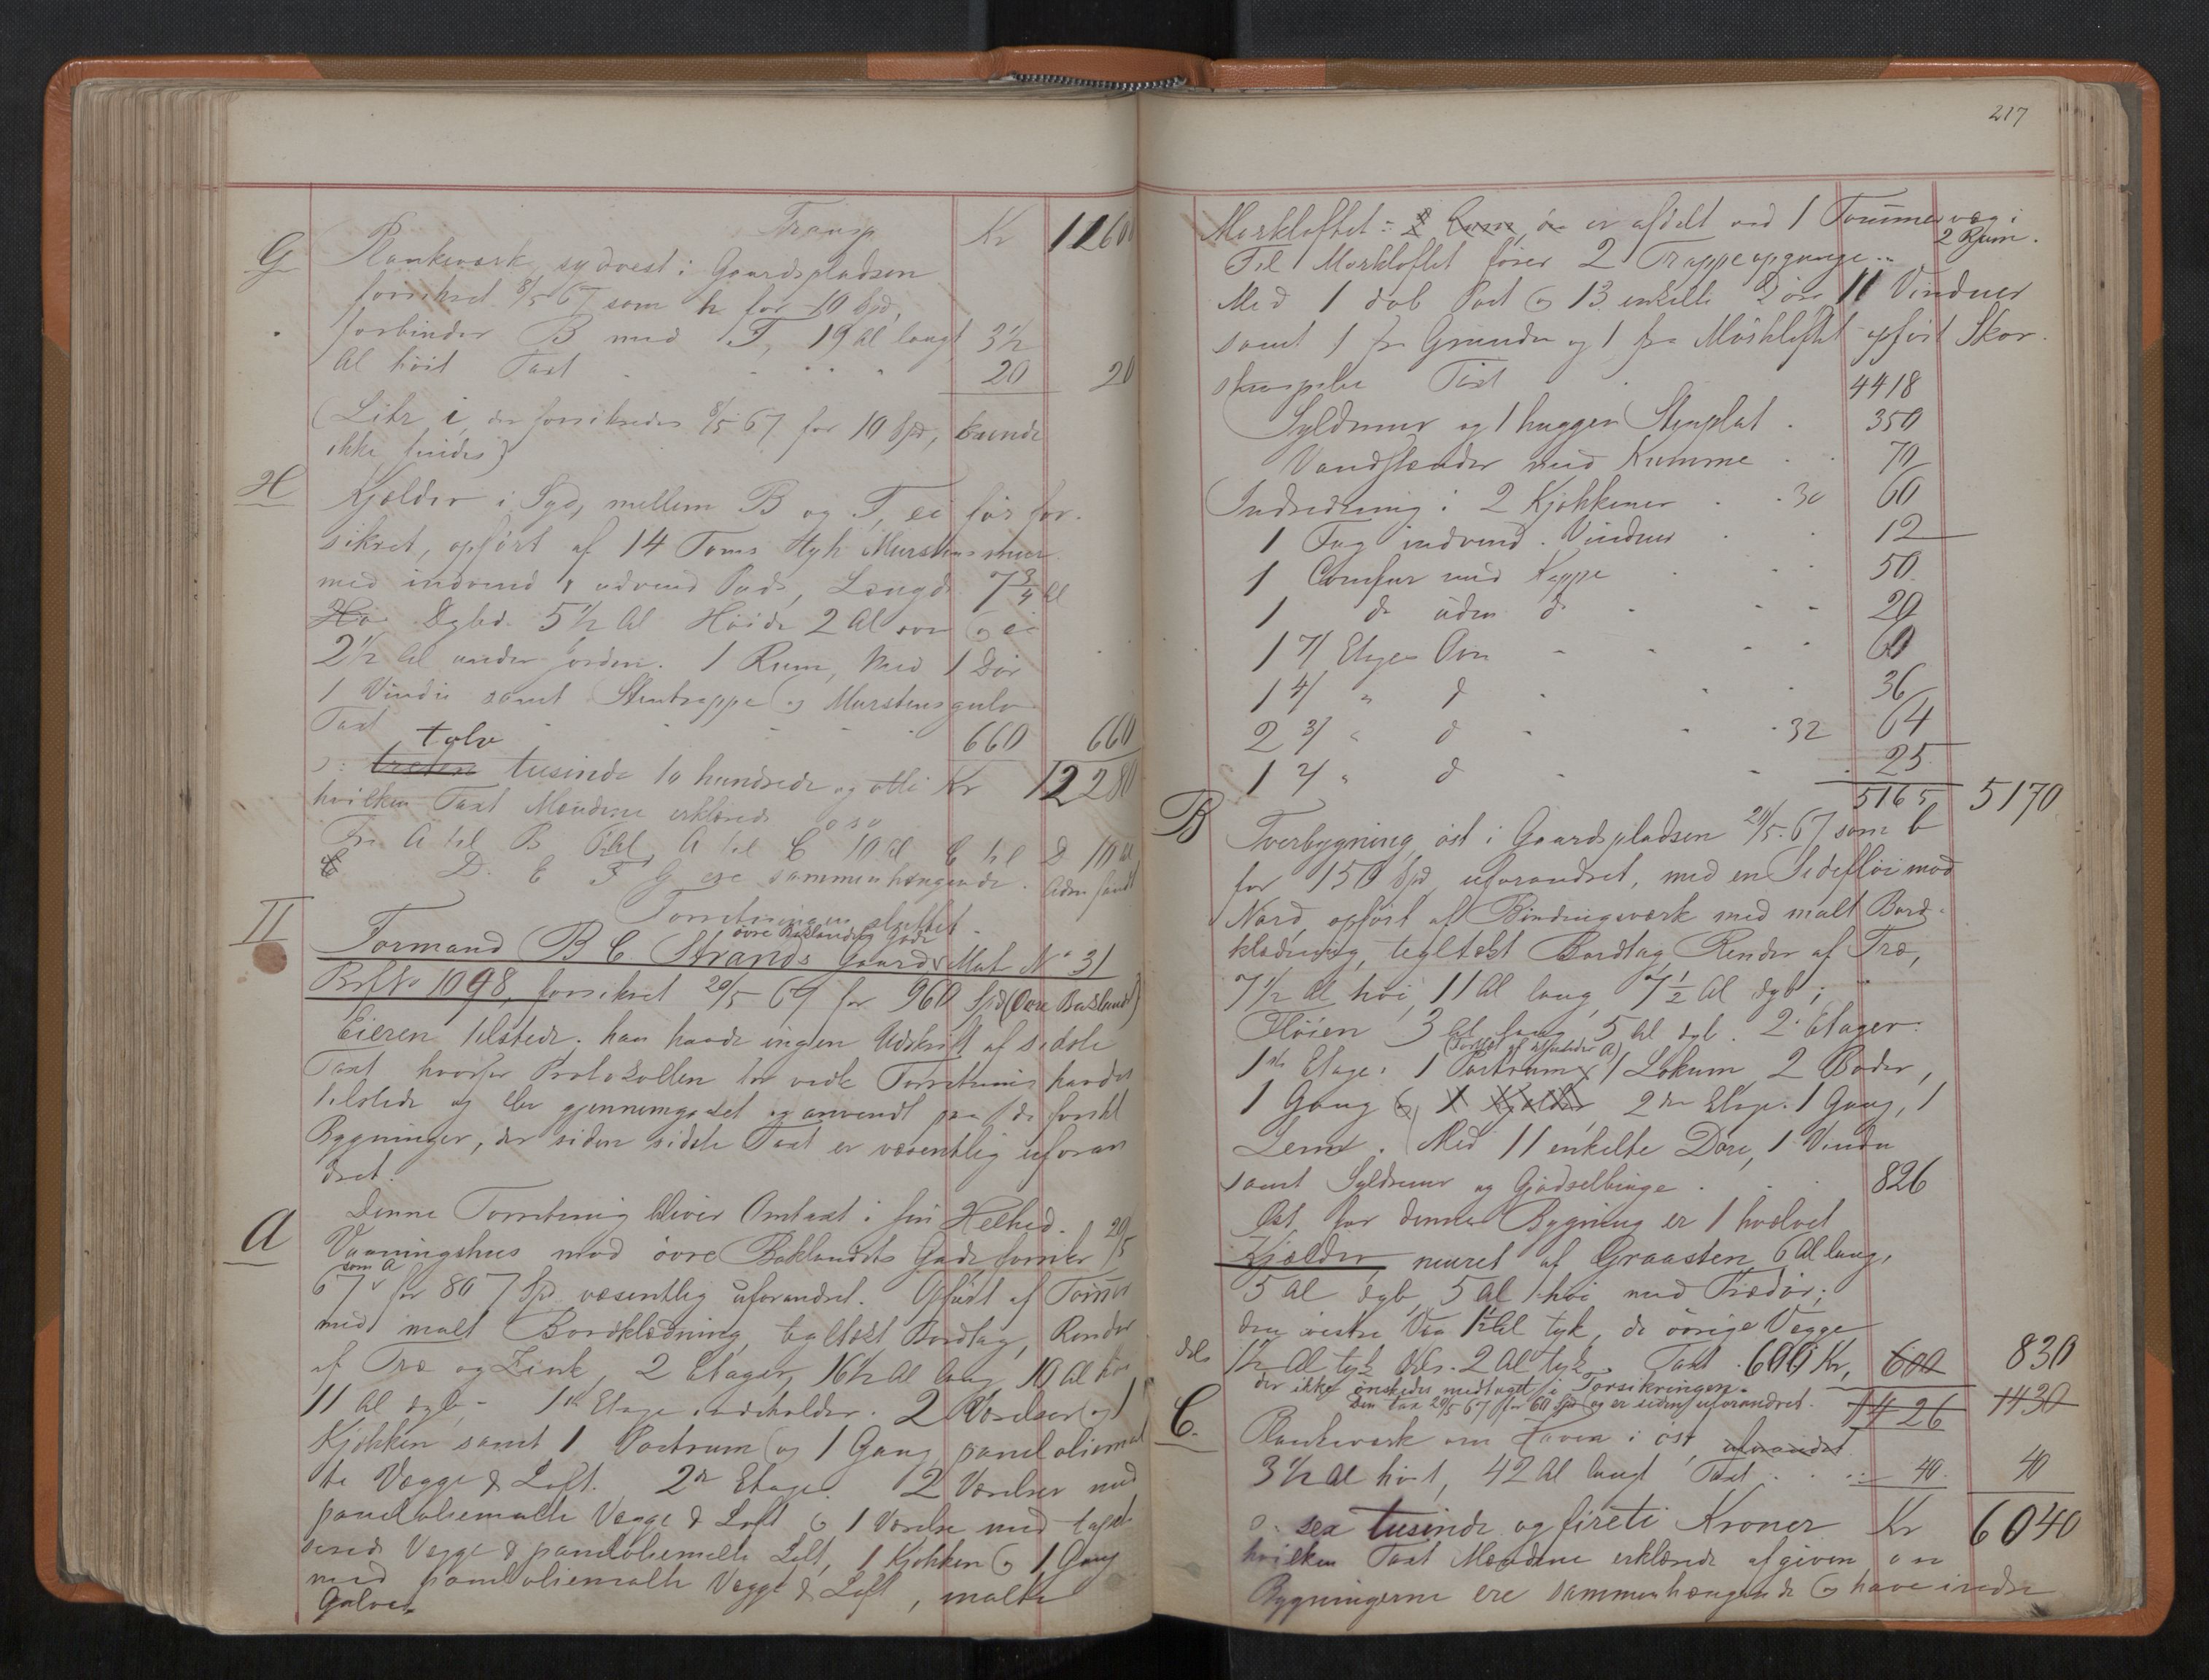 Transp Kr 11600
G Plankeværk sydvest i Gaardspladsen
forsikret 8/5 67 som h for 10 Spd,
forbinder B med F, 19 Al langt 3½
Al høit Taxt 20 20
(Litr i, der forsikredes 8/5 67 for 10 Spd, kunde
ikke findes)
H Kjælder i Syd, mellem B og F, ei før for-
sikret, opført af 14 Toms tyk Murstensmur
med indvend & udvend Puds, Længde 7¾ Al
Hø Dybd. 5½ Al Høide 2 Al over og
2½ Al under Jorden. 1 Rum, Med 1 Dør
1 Vindu samt Stentrappe og Murstensgulv
Taxt 660 660
tolv
ɔ: tretten tusinde to hundrede og otti Kr 12280
hvilken Taxt Mændene erklærede o s v
Fra A til B Al, A til C 10 Al C til D 10 Al
C D. E F G ere sammenhængende.
Forretningen sluttet.
øvre Baklandets Gade
II Formand B C. Strands Gaard Mat No 31
Brfts 1098, forsikret 20/5 67 for 960 Spd (Øvre Bakland)
Eieren tilstede. han havde ingen Udskrift af sidste
Taxt hvorfor Protokollen for vedk Forretning havdes
tilstede og blev gjennemgaaet og anvendt paa de forskl
Bygninger, der siden sidste Taxt er væsentlig uforan
dret.
Denne Forretning bliver Omtaxt i sin Helhed.
A Vaaningshus mod øvre Baklandets Gade forsikr 20/5
som a
67 for 807 Spd væsentlig uforandret. Opført af Tømmer
med malt Bordklædning, tegltækt Bordtag, Render
af Træ og Zink, 2 Etager, 16½ Al lang, 10 Al høi
11 Al dyb, - 1ste Etage indeholder. 2 Værelser og 1
Kjøkken samt 1 Portrum og 1 Gang, panel oliemal
te Vægge & Loft. 2den Etage. 2 Værelser med
paneloliemalte Vægge & Loft og 1 Værelse med tapet-
serede Vægge & paneloliemalte Loft, 1 Kjøkken og 1 Gang
med paneloliemalte Vægge & Loft, malte
Gulve.
217
Mørkloftet: er afdelt ved 1 Tømmervæg i
2 Rum.
Til Mørkloftet fører 2 Trappeopgange.
Med 1 dob Port og 13 enkelte Døre 11 Vinduer
samt 1 fra Grunden og 1 fra Mørkloftet opført Skor-
stenspibe Taxt 4418
Syldmur og 1 huggen Stenplat 350
Vandstænder med Kumme 70
Indredning i 2 Kjøkkener 30 60
1 Fag indvend. Vinduer 12
1 Comfur med Kappe 50
1 do uden do 20
1 7/ Etages Ovn 60
1 4/ " d 36
2 3/ " d 32 64
1 2/ " d 25
5165 5170
B Tverbygning øst i Gaardspladsen 20/5. 67 som b
for 150 Spd uforandret, med en Sidefløi mod
Nord, opført af Bindingsværk med malt Bord-
klædning, tegltækt Bordtag, Render af Træ,
7½ Al høi, 11 Al lang, 7½ Al dyb;
Fløien 3 Al lang 5 Al dyb. 2 Etager.
1ste Etage. 1 Portrum, 1 Lokum, 2 Boder,
1 Gang og 1 Kjælder 2den Etage. 1 Gang, 1
Lem. Med 11 enkelte Døre, 1 Vindu
samt Syldmur og Gjødselbinge 826
Øst for denne Bygning er 1 hvælvet
Kjælder muret af Graasten 6 Al lang,
5 Al dyb, 5 Al høi med Trædør;
den vestre Væg 1½ Al tyk, de øvrige Vægge
dels 1½ Al tyk dels. 2 Al tyk. Taxt 600 Kr, 600 830
der ikke ønskedes medtaget i Forsikringen. 1426 1430
20/5 67 for 60 Spd og er siden uforandret.
C. Plankeværk om Haven i øst, uforandret
3½ Al høit, 42 Al langt Taxt 40. 40
ɔ: sex tusinde og fireti Kroner Kr 6040
hvilken Taxt Mændene erklærede afgiven o s v
Bygningerne ere sammenhængende og have indre